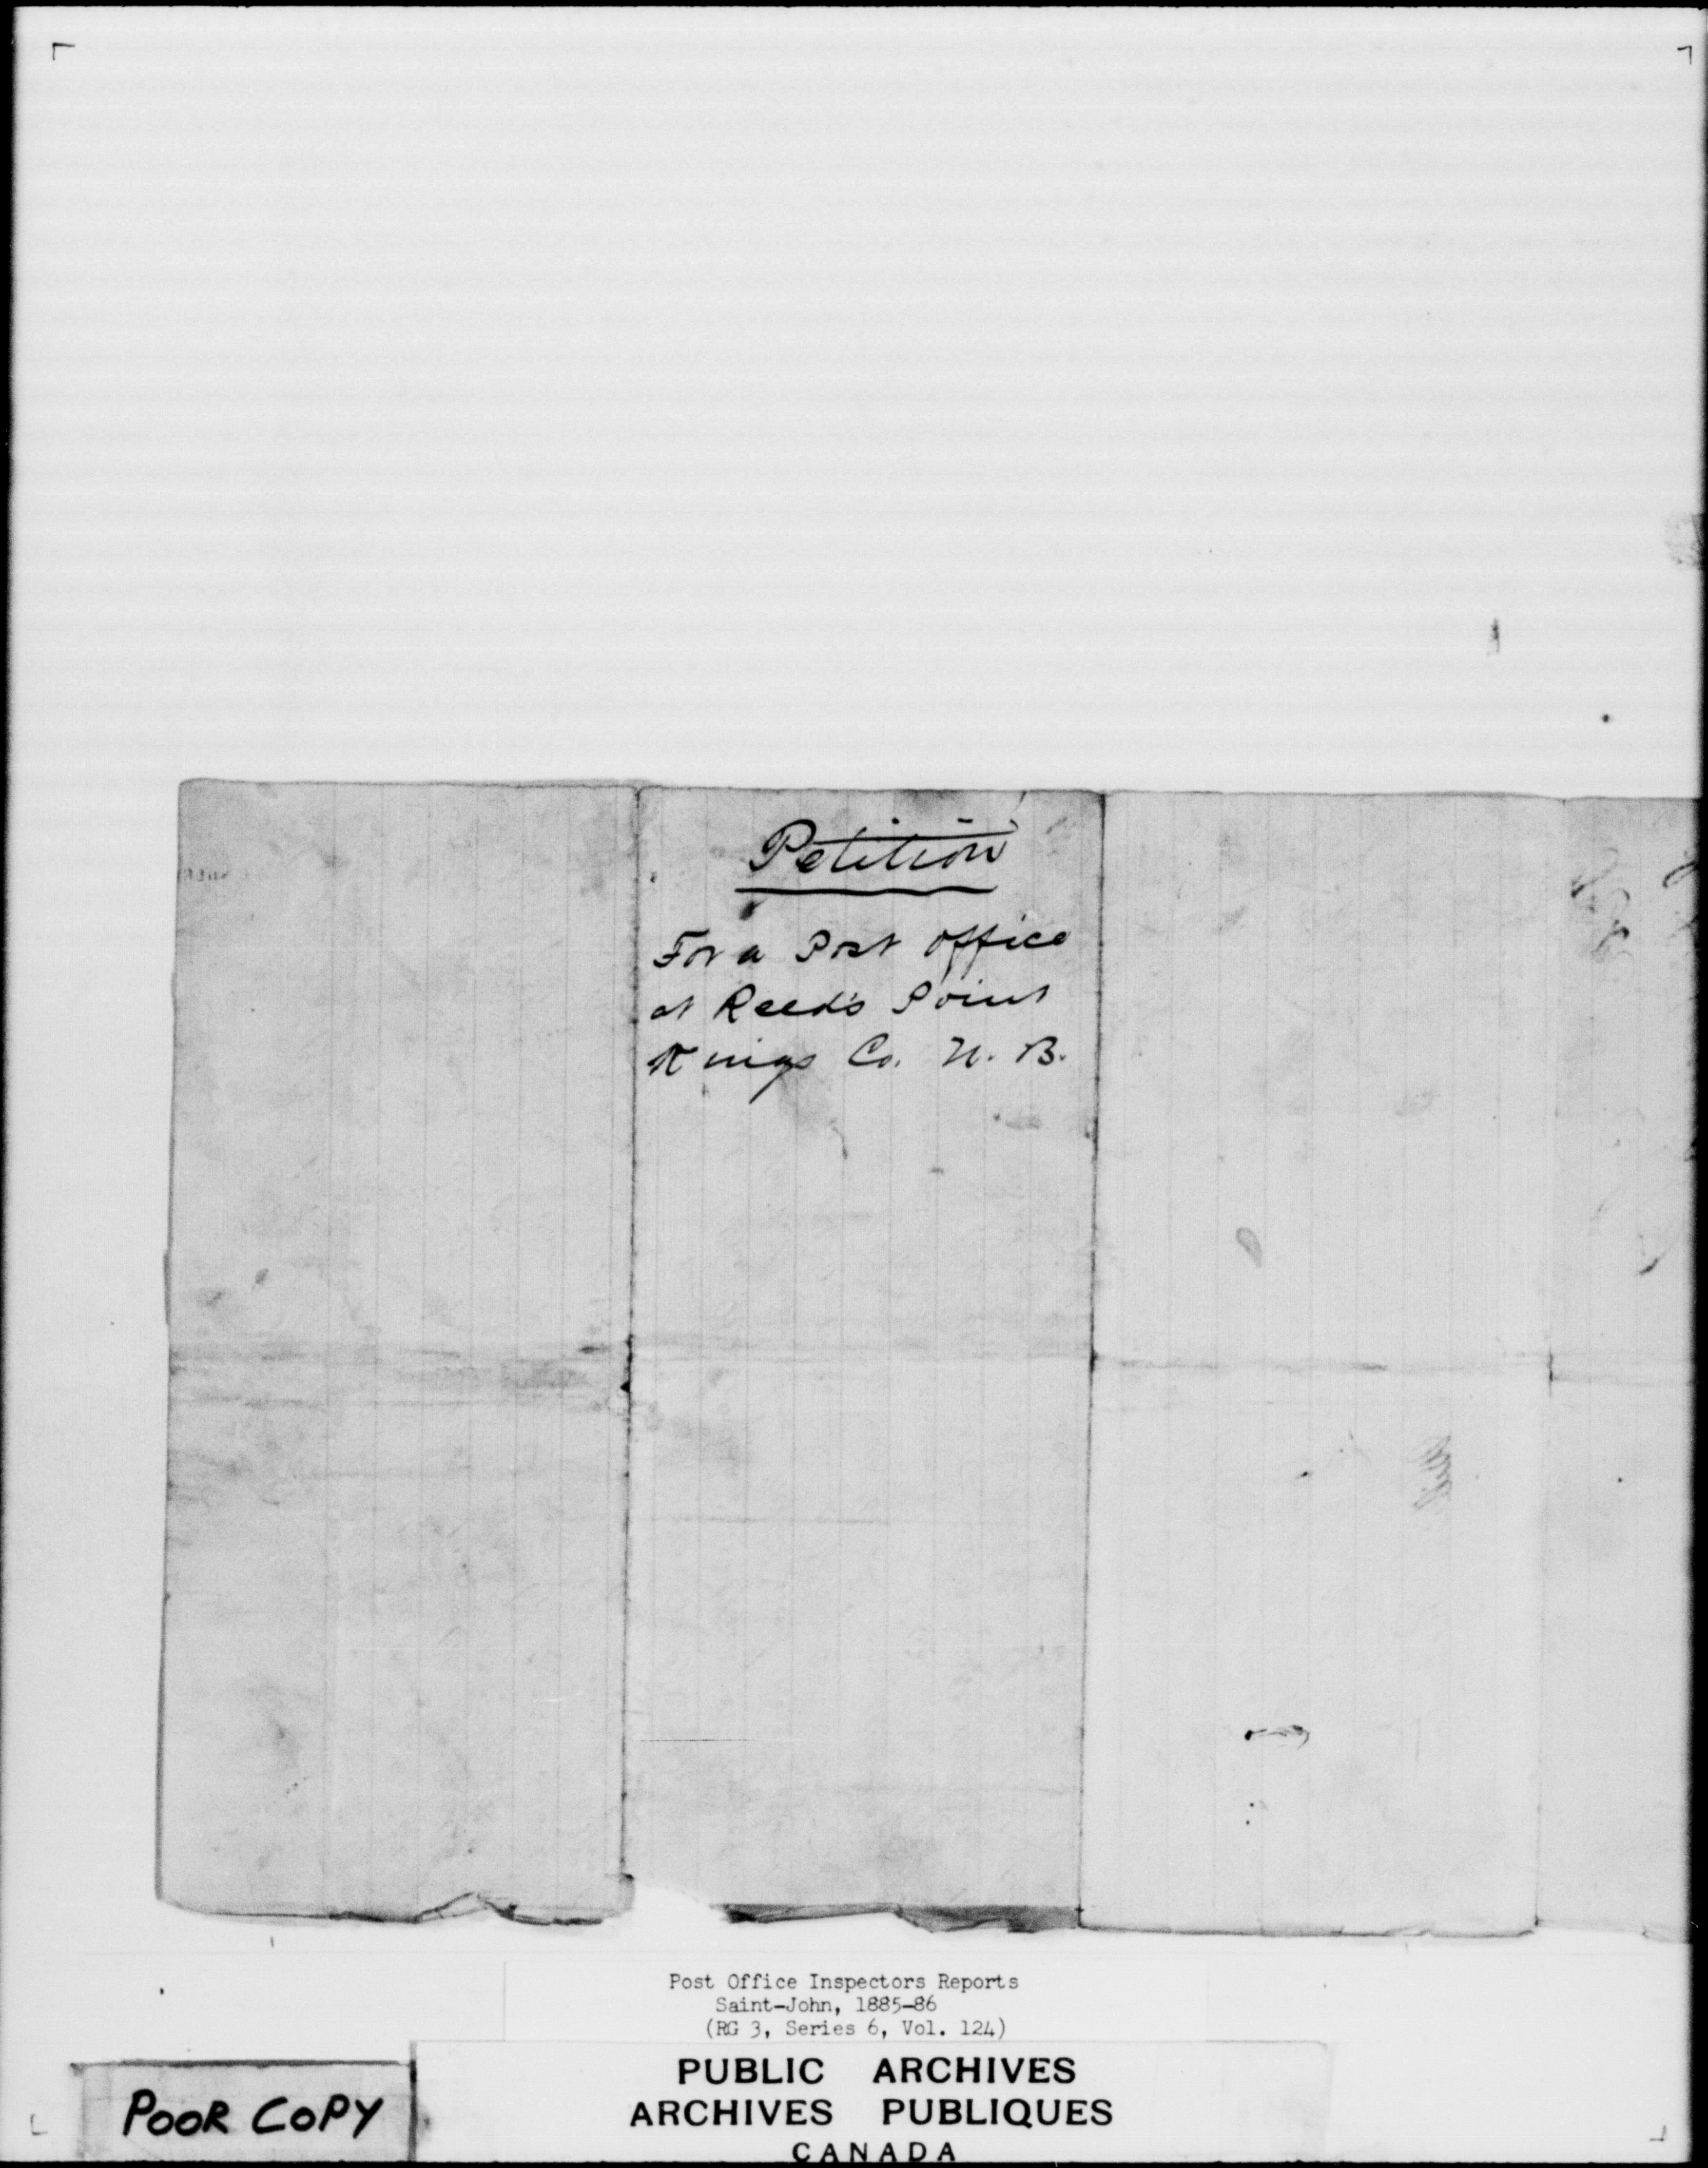 Petition
For a Post Office
at Reed's Point
Kings Co. N. B.
Post Office Inspectors Reports
Saint-John, 1885-86
(RG 3, Series 6, Vol. 124)
PUBLIC ARCHIVES
ARCHIVES PUBLIQUES
CANADA
POOR COPY